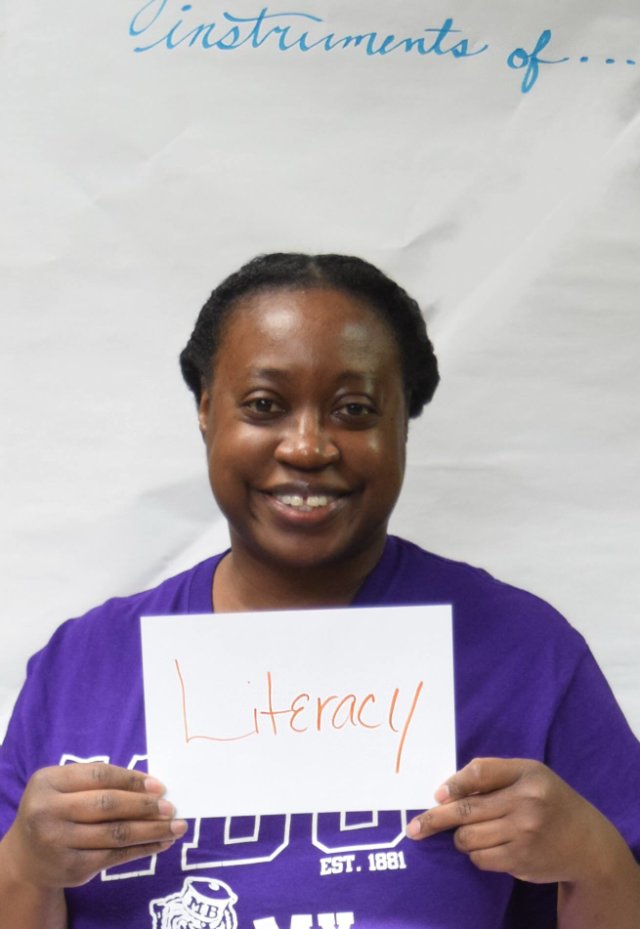 instruments of....
Literacy
EST. 1881
MB
MY